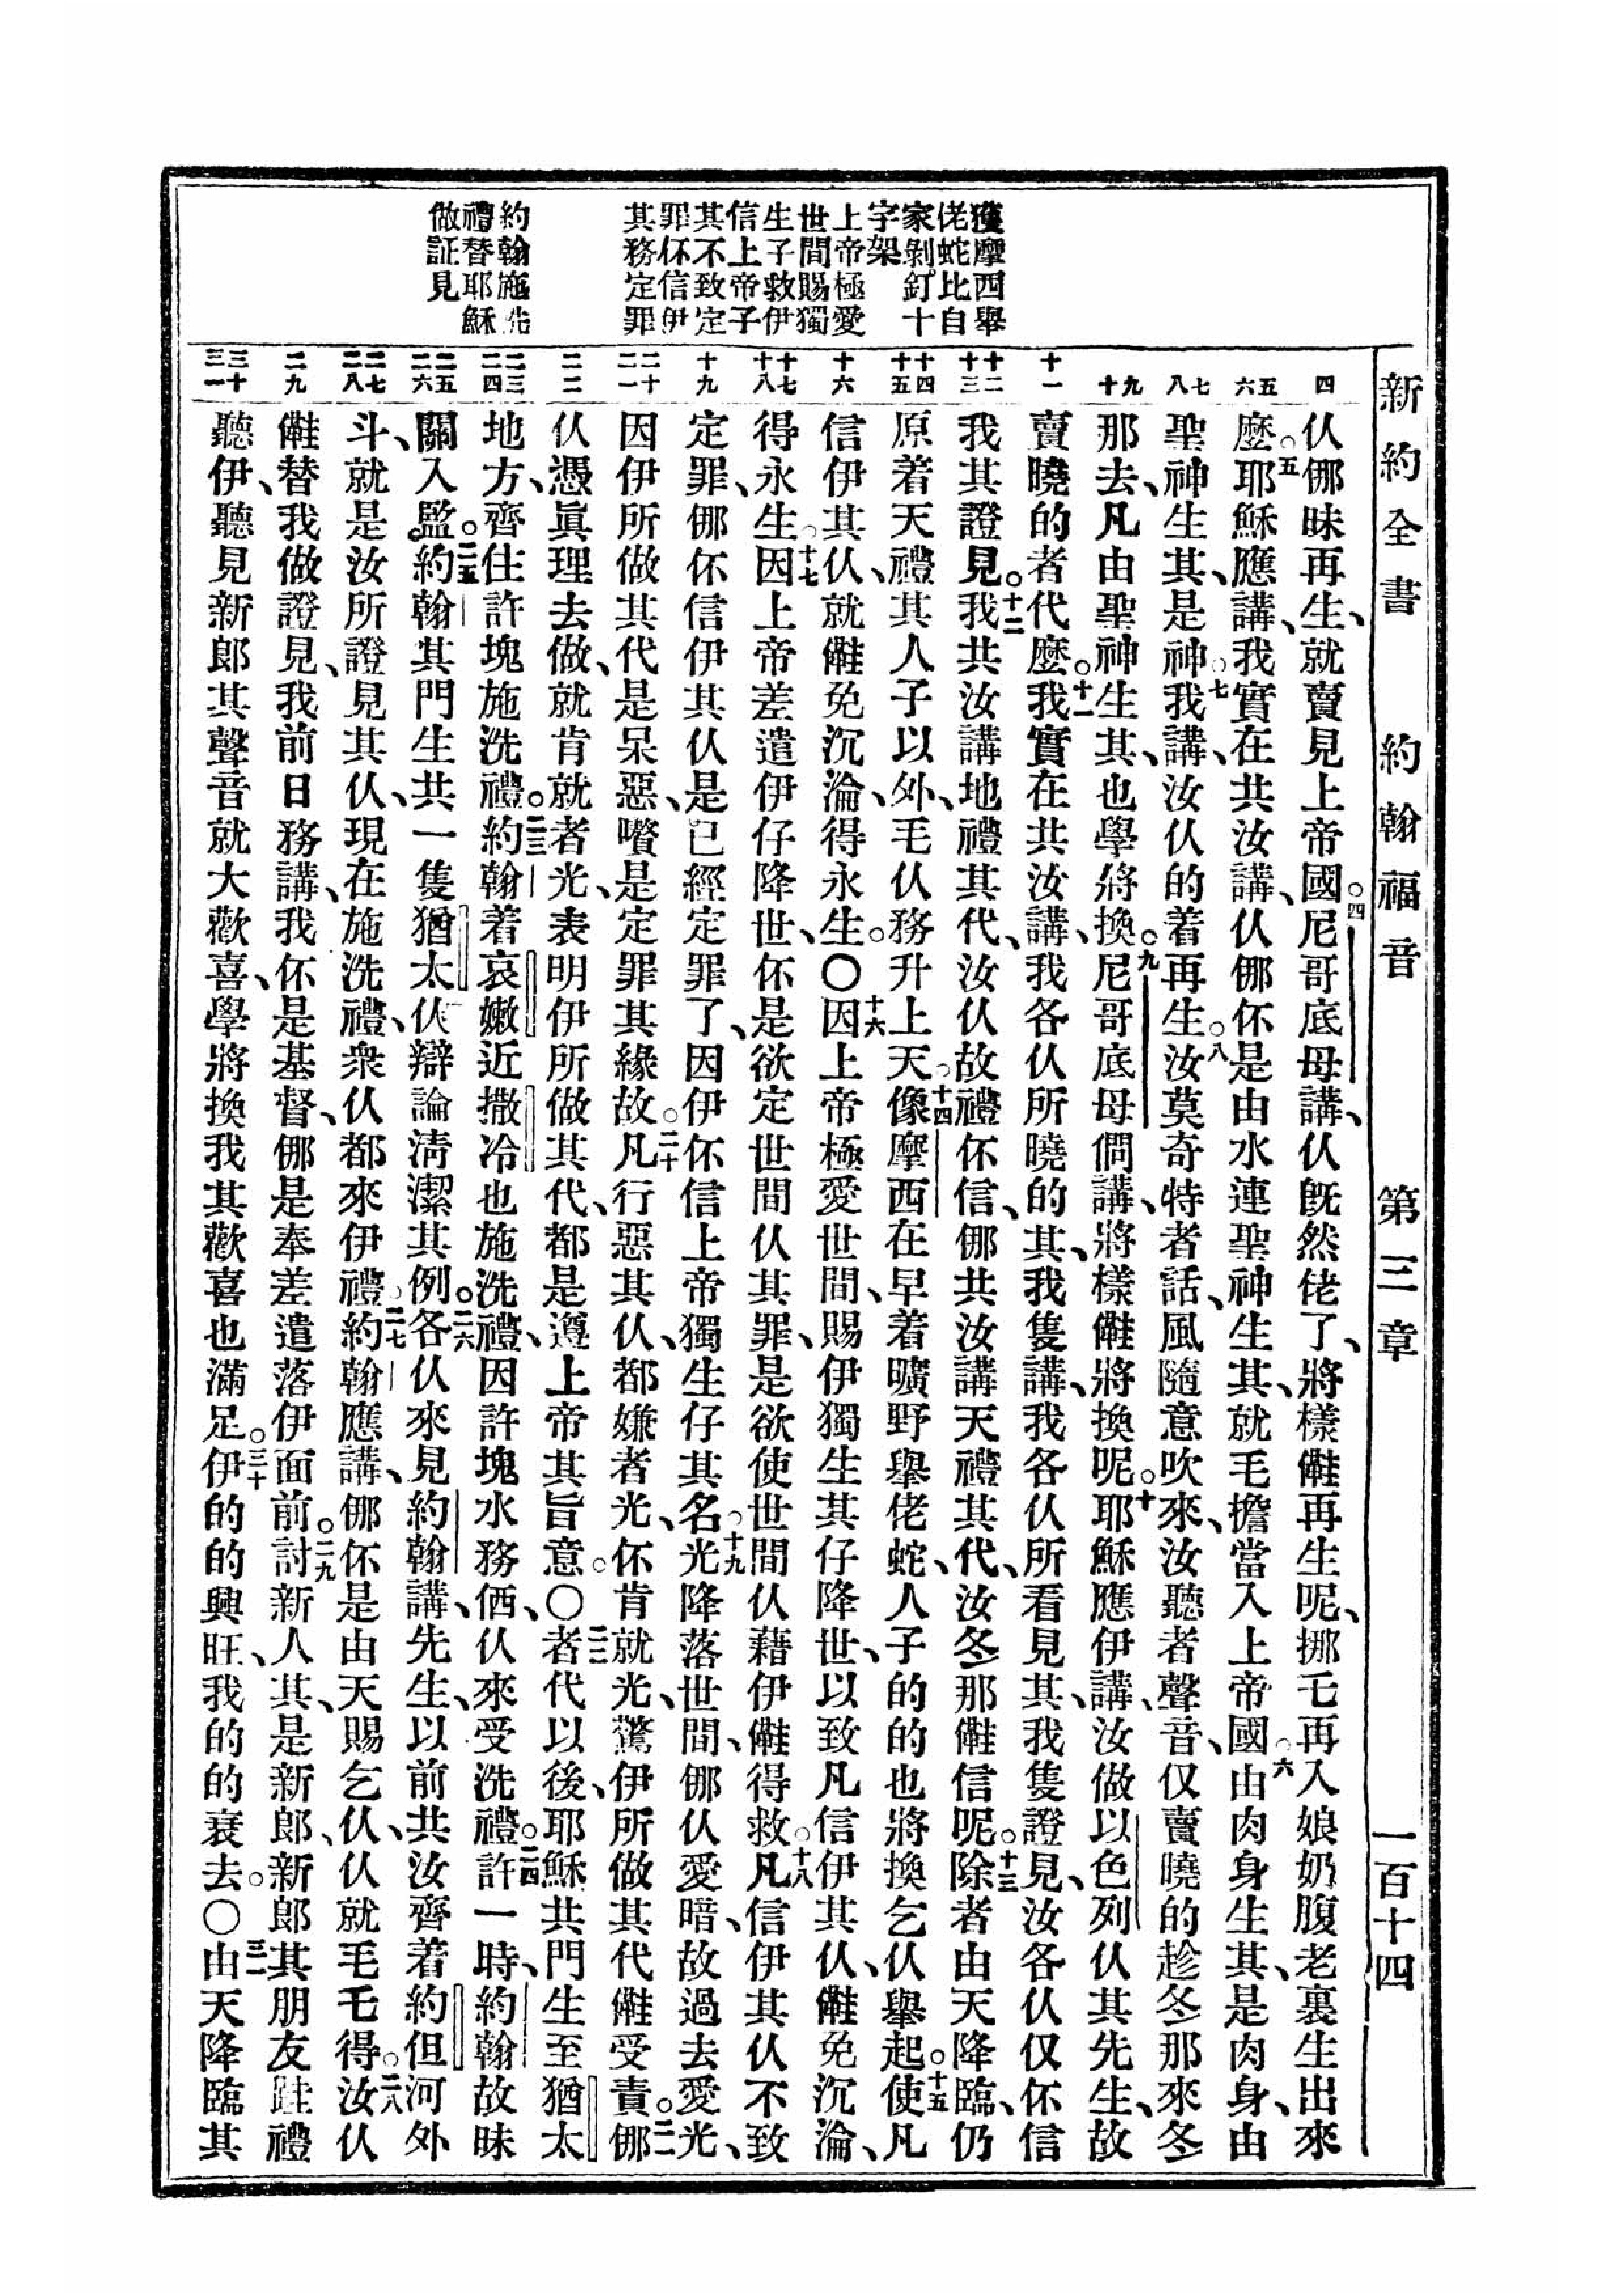 新約全書　約翰福音　第三章　一百十四
獲摩西舉
佬蛇比自
家剝釘十
字架
上帝極愛
世間賜獨
生子救伊
信上帝子
其不致定
罪伓信伊
其務定罪
約翰施洗
禮替耶穌
做証見
四
五
六
七
八
九
十
十一
十二
十三
十四
十五
十六
十七
十八
十九
二十
二一
二二
二三
二四
二五
二六
二七
二八
二九
三十
三一
仈㑚昧再生、就賣見上帝國。四尼哥底母講、仈旣然佬了、將樣𠆧再生呢、挪乇再入娘奶腹老裏生出來
麼。五耶穌應講、我實在共汝講、仈㑚伓是由水連聖神生其、就毛擔當入上帝國。六由肉身生其、是肉身、由
聖神生其、是神。七我講、汝仈的着再生。八汝莫奇特者話、風隨意吹來、汝聽者聲音、仅賣曉的趁冬那來冬
那去、凡由聖神生其、也學將換。九尼哥底母倜講、將樣𠆧將換呢。十耶穌應伊講、汝做以色列仈其先生、故
賣曉的者代麼。十一我實在共汝講、我各仈所曉的其、我隻講、我各仈所看見其、我隻證見、汝各仈仅伓信
我其證見。十二我共汝講地禮其代、汝仈故禮伓信、㑚共汝講天禮其代、汝冬那𠆧信呢。十三除者由天降臨、仍
原着天禮其人子以外、毛仈務升上天。十四像摩西在早着曠野舉佬蛇、人子的的也將換乞仈舉起。十五使凡
信伊其仈、就𠆧免沉淪、得永生。〇十六因上帝極愛世間、賜伊獨生其仔降世、以致凡信伊其仈、𠆧免沉淪、
得永生。十七因上帝差遣伊仔降世、伓是欲定世間仈其罪、是欲使世間仈藉伊𠆧得救。十八凡信伊其仈不致
定罪、㑚伓信伊其仈是已經定罪了、因伊伓信上帝獨生仔其名。十九光降落世間、㑚仈愛暗、故過去愛光、
因伊所做其代是呆惡、嚽是定罪其緣故。二十凡行惡其仈、都嫌者光、伓肯就光、驚伊所做其代𠆧受責。二一㑚
仈憑眞理去做、就肯就者光、表明伊所做其代、都是遵上帝其旨意。〇二二者代以後、耶穌共門生至猶太
地方、齊住許塊施洗禮。二三約翰着哀嫩近撒冷也施洗禮、因許塊水務価、仈來受洗禮。二四許一時、約翰故昧
關入監。二五約翰其門生共一隻猶太仈辯論淸潔其例。二六各仈來見約翰講、先生、以前共汝齊着約但河外
斗、就是汝所證見其仈、現在施洗禮、衆仈都來伊禮。二七約翰應講、㑚伓是由天賜乞仈、仈就毛乇得。二八汝仈
𠆧替我做證見、我前日務講、我伓是基督、㑚是奉差遣落伊面前。二九討新人其、是新郎、新郎其朋友跬禮
聽伊、聽見新郎其聲音就大歡喜、學將換我其歡喜也滿足。三十伊的的興旺、我的的衰去。〇三一由天降臨其